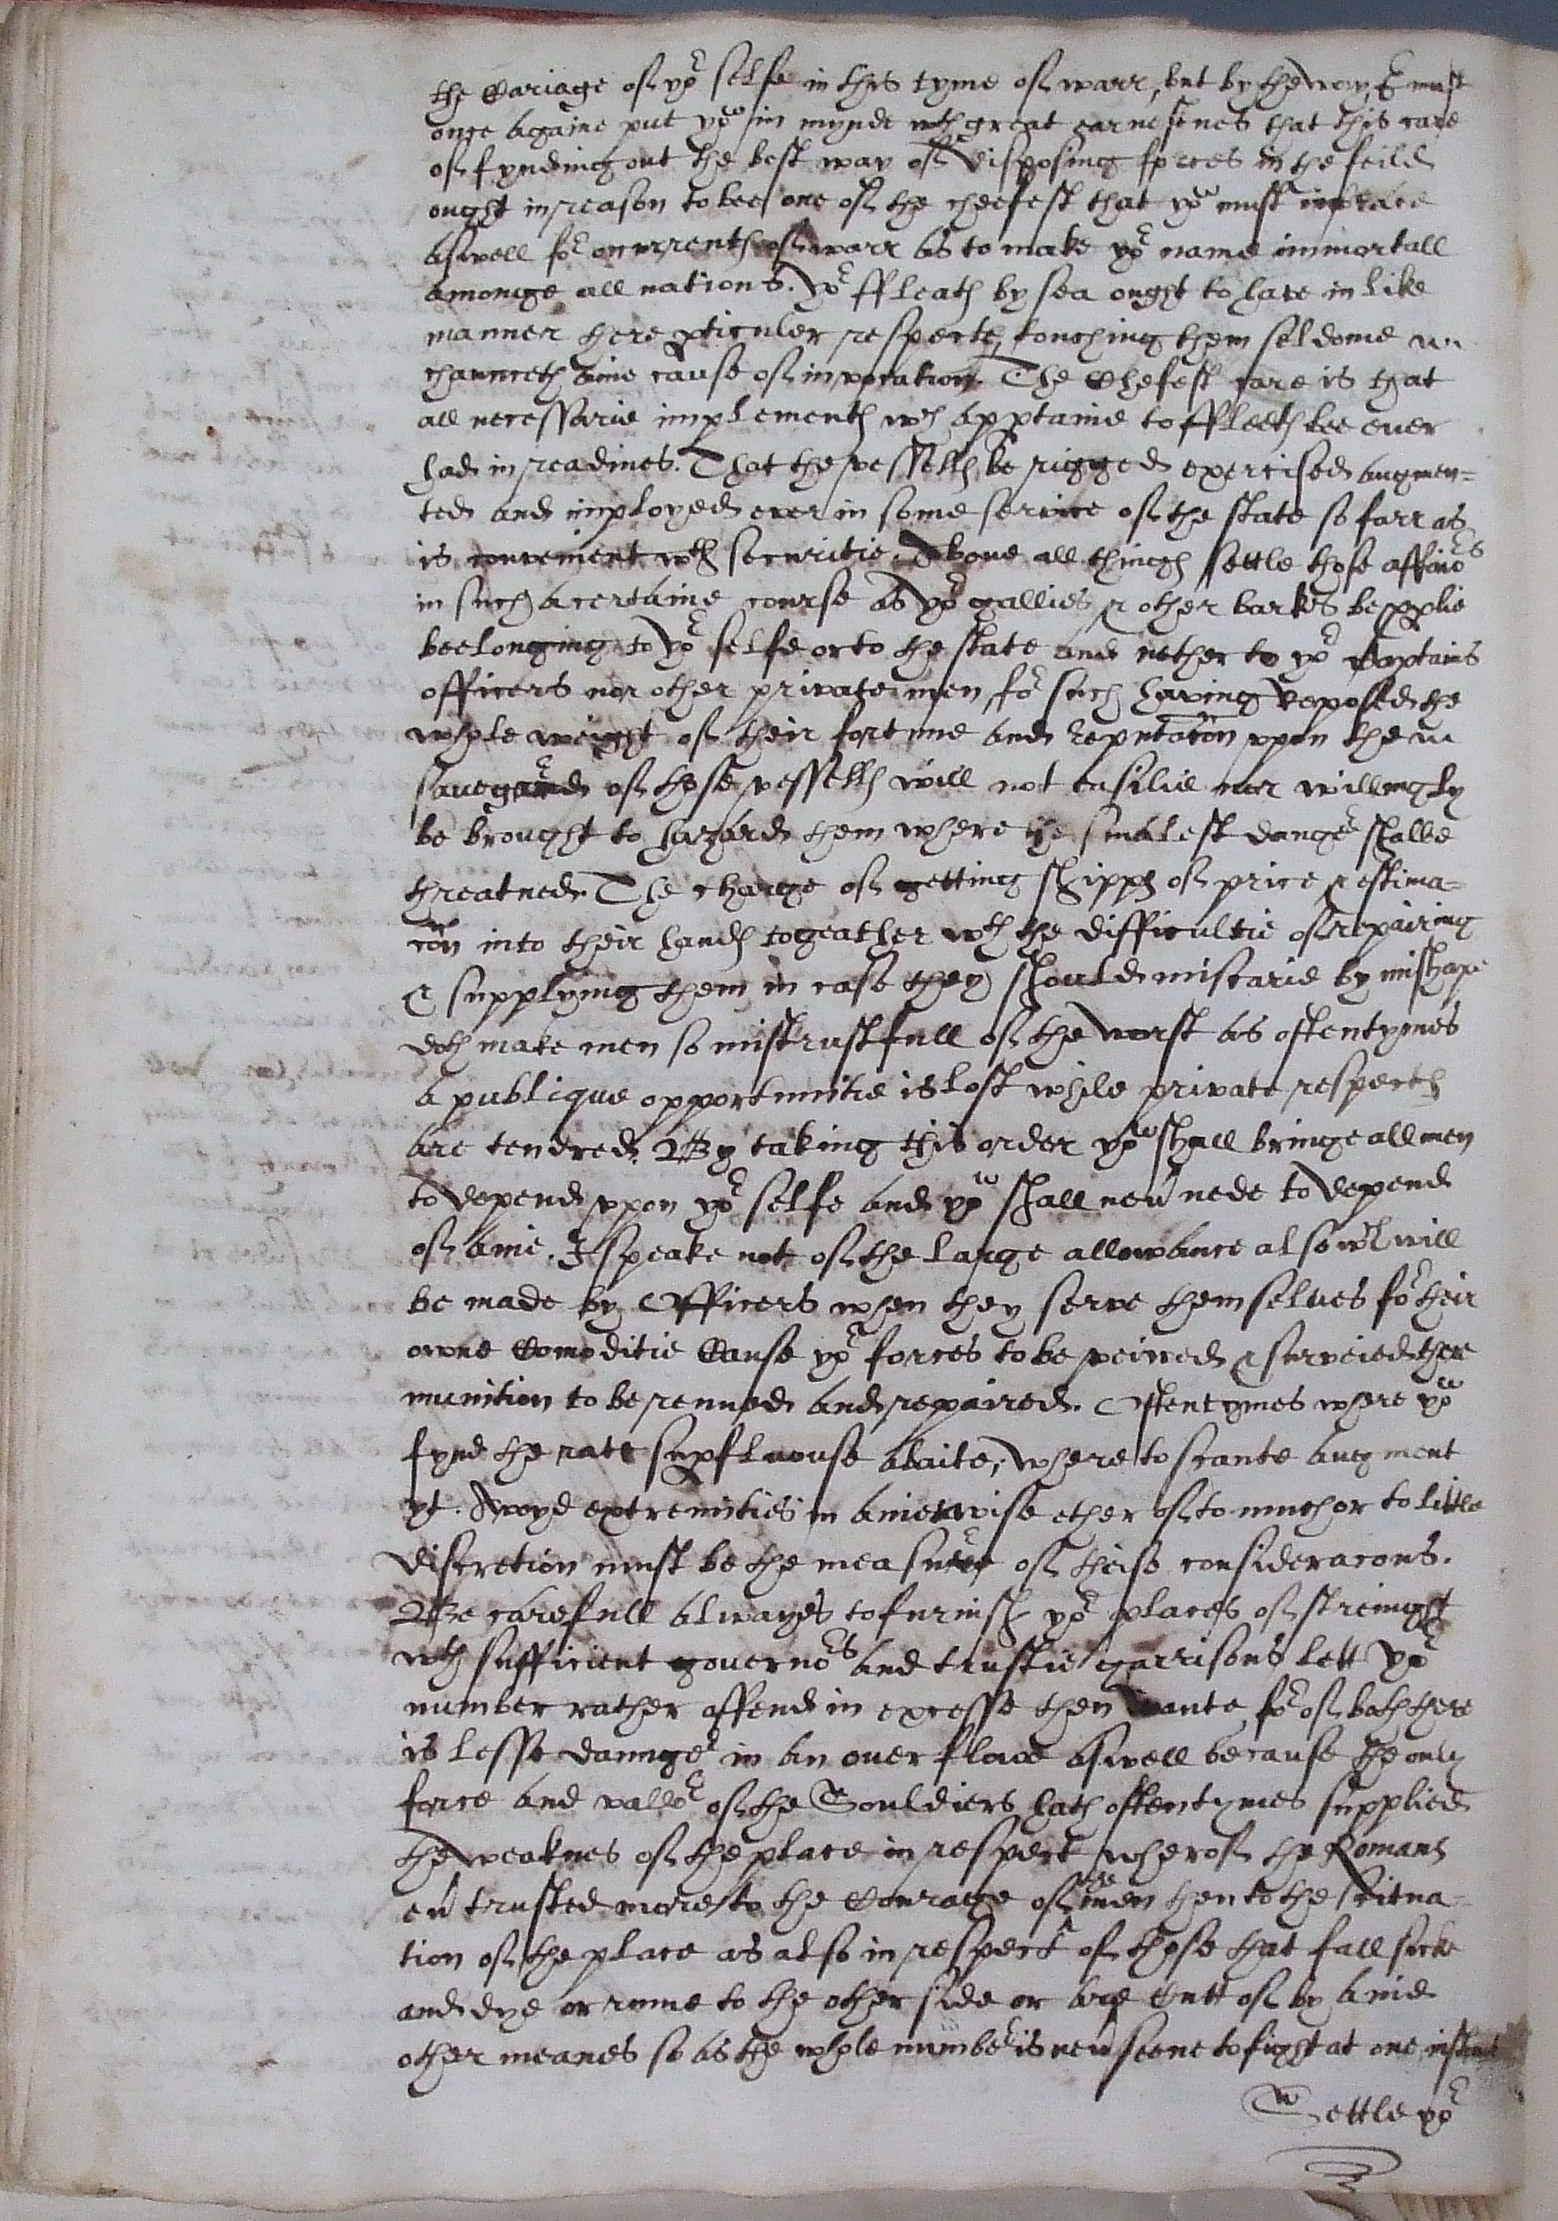 the Cariage of yor selfe in this tyme of warr, but by the way I must
once againe put you in mynde wth great earnestnes that this care
of fynding out the best way of disposing forces in the feild
ought in reason to bee one of the cheefest that you must imbrace
aswell for of warr as to make yor name immortall
amonge all nations. Yor ffleats by sea ought to have in like
manner there pticuler respects, touching them seldome
chaunceth anie cause of inovation. The Chefest care is that
all necessarie implements wch apptaine to ffleets bee ever
had in readines. That the vessells be rigged exercised augmen-
ted and imployed ever in some service of the state so farr as
is convenient wth securitie. Above all things settle those affairs
in such a certaine course as yor gallies & other barkes be
beelonging to yor selfe or to the state and nether to yor Captains
officers nor other private men, for such having reposed the
whole weight of their fortune and reputacon vppon the
savegard of those vessells will not easilie nor willingly
be brought to hazard them where the smalest danger shalbe
threatned. The charge of getting shipps of price & estima-
con into their hands togeather wth the difficultie of repairing
& supplying them in case they should miscarie by mishape
doth make men so mistrustfull of the worst as oftentymes
a publique opportunitie is lost while private respects
are tendred. By taking this order you shall bringe all men
to depend vppon yor selfe and you shall never nede to depend
of anie. I speake not of the large allowance also wch will
be made by Officers when they serve themselves for their
owne Comoditie Cause yor forces to be veiwed & surveied there
munition to be renued and repaired. Oftentymes where you
fynd the rate supfluouse abaite, where to scante augment
yt. Avoyd extremities in aniewise ether of to much or to little
discretion must be the measurer of theise consideracons.
Be carefull alwayes to furnish yor places of streingth
wth sufficient governors and trustie garrisons lett yor
number rather offend in excesse then wante, for of both there
is lesse daunger in an over flowe aswell because the only
force and vallor of the Souldiers hath oftentymes supplied
the weaknes of the place in respect wherof the Romans
ever trusted more to the Courage of the men then to the situa-
tion of the place as also in respect of those that fall sicke
and dye or runne to the other side or are Cutt of by anie
other meanes so as the whole number is never seene to fight at one instant
Settle yor